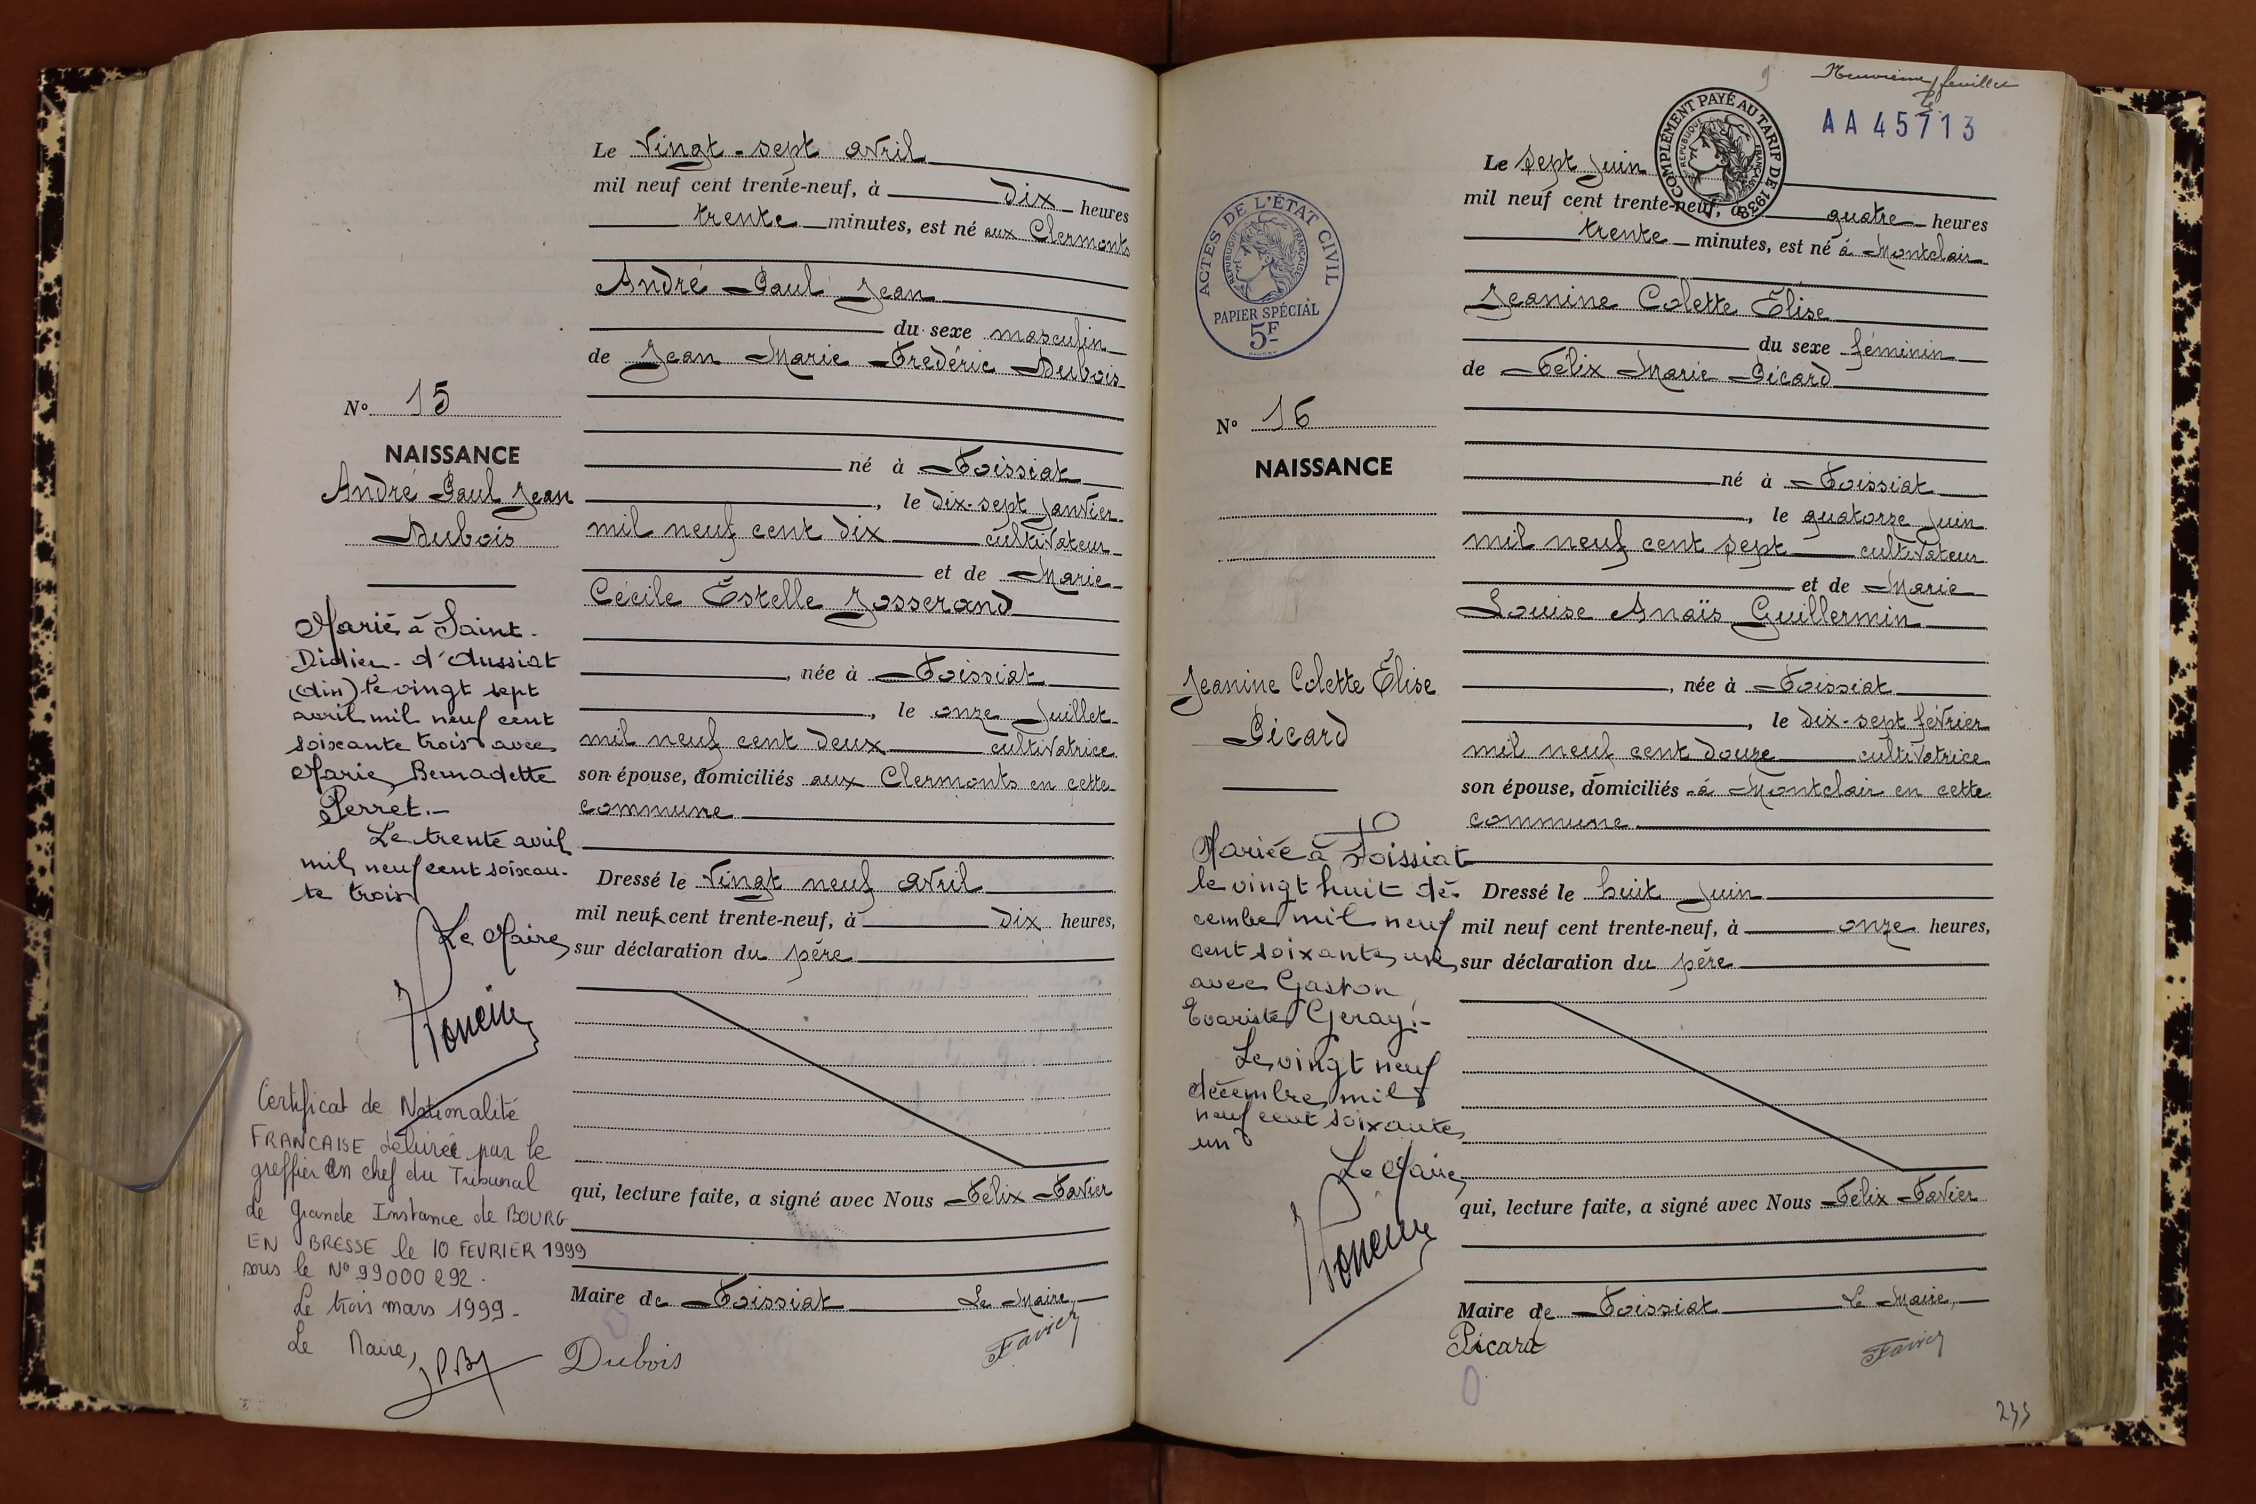 Le Vingt-sept avril
mil neuf cent trente-neuf, à dix heures
trente minutes, est né aux Clermonts
André Paul Jean
du sexe masculin
de Jean Marie Frédéric Dubois
né à Foissiat
, le dix-sept Janvier
mil neuf cent dix cultivateur
et de Marie
Cécile Estelle Josserand
, née à Foissiat
, le onze Juillet
mil neuf cent deux cultivatrice
son épouse, domiciliés aux Clermonts en cette
commune
Dressé le vingt neuf avril
mil neuf cent trente-neuf, à dix heures,
sur déclaration du père
qui, lecture faite, a signé avec Nous Félix Favier
Maire de Foissiat Le Maire,
Dubois Favier
No 15
NAISSANCE
André Paul Jean
Dubois
Marié à Saint-
Didier-d'Aussiat
(Ain) le vingt sept
avril mil neuf cent
soixante trois avec
Marie Bernadette
Perret.-
Le trente avril
mil neuf cent soixan-
te trois
Le Maire
Certificat de Nationalité
FRANCAISE délivrée par le
greffier en chef du Tribunal
de Grande Instance de BOURG
EN BRESSE le 10 FEVRIER 1999
sous le No 99000292.
Le trois mars 1999-
Le Maire,
Neuvième feuillet
9
AA45713
COMPLÉMENT PAYÉ AU TARIF DE 1938
RÉPUBLIQUE FRANÇAISE
ACTES DE L'ÉTAT CIVIL
RÉPUBLIQUE FRANÇAISE
PAPIER SPÉCIAL
5F
Le sept Juin
mil neuf cent trente-neuf, à quatre heures
trente minutes, est né à Montclair
Jeanine Colette Élise
du sexe féminin
de Félix Marie Picard
né à Foissiat
, le quatorze Juin
mil neuf cent sept cultivateur
et de Marie
Louise Anaïs Guillermin
, née à Foissiat
, le dix-sept février
mil neuf cent douze cultivatrice
son épouse, domiciliés à Montclair en cette
commune
Dressé le huit Juin
mil neuf cent trente-neuf, à onze heures,
sur déclaration du père
qui, lecture faite, a signé avec Nous Félix Favier
Maire de Foissiat Le Maire,
Picard Favier
No 16
NAISSANCE
Jeanine Colette Élise
Picard
Mariée à Foissiat
le vingt huit dé-
cembre mil neuf
cent soixante un
avec Gaston
Evariste Geray.-
Le vingt neuf
décembre mil
neuf cent soixante
un
Le Maire
233